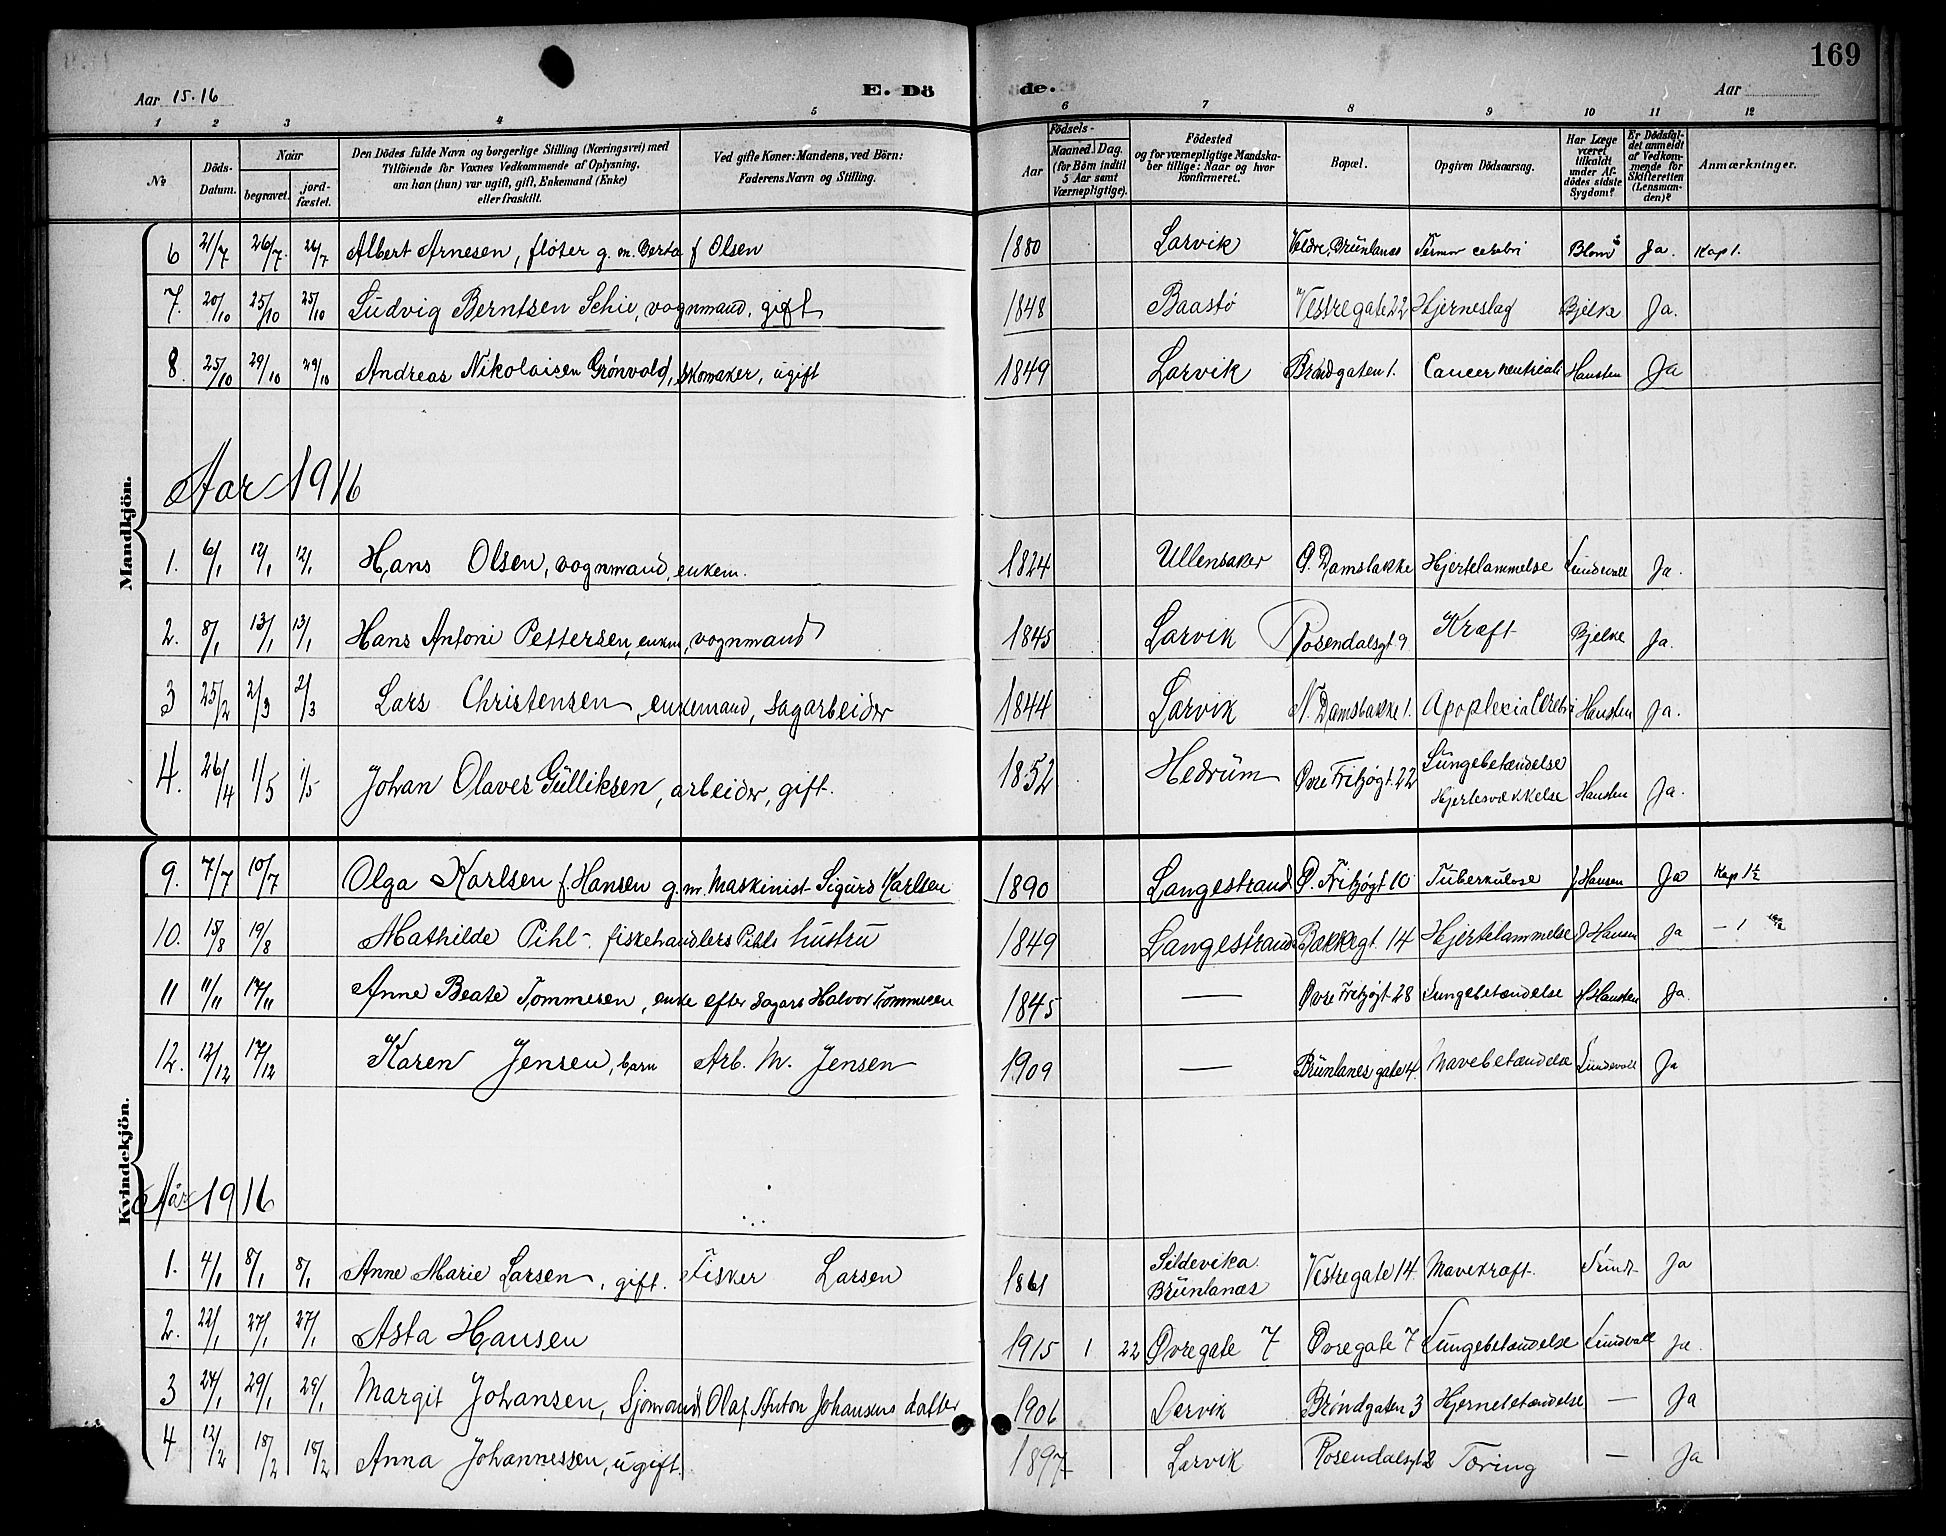 169
Aar 15.16 E. Dö de. Aar
1 2 3 4 5 6 7 8 9 10 11 12
No Döds-Datum. Naar begravet. jord-fæstet. Den Dödes fulde Navn og borgerlige Stilling (Næringsvei) med Tilföiende for Voxnes Vedkommende af Oplysning, om han (hun) var ugift, gift, Enkemand (Enke) eller fraskilt. Ved gifte Koner: Mandens, ved Börn: Faderens Navn og Stilling. Födsels- Aar Maaned. Dag. (for Börn indtil 5 Aar samt Værnepligtige). Födested og for værnepligtige Mandskaber tillige: Naar og hvor konfirmeret. Bopæl. Opgiven Dödsaarsag. Har Læge været tilkaldt under Afdödes sidste Sygdom? Er Dödsfaldet anmeldt af Vedkommende for Skifteretten (Lensmanden)? Anmærkninger.
Mandkjön.
6 21/7 26/7 26/7 Albert Arnesen, fløter g. m. Berta f Olsen 1880 Larvik Veldre, Brünlanes cerebri Blom Ja. Kap 1.
7. 20/10 25/10 25/10 Ludvig Berntsen Schie, vognmand, gift 1848 Baastø Vestregate 22 Hjerneslag Bjelke Ja.
8. 25/10 29/10 29/10 Andreas Nikolaisen Grönvold, skomaker, ugift 1849 Larvik Bröndgaten 1. Cancer ventriculi Hansten Ja
Aar 1916
1. 6/1 12/1 12/1 Hans Olsen, vognmand, enkem. 1824 Ullensaker Ø. Damsbakke Hjertelammelse Lundevall Ja.
2. 8/1 13/1 13/1 Hans Antoni Pettersen, enkem, vognmand 1845 Larvik Rosendalsgt 9 Kræft Bjelke Ja.
3 25/2 2/3 2/3 Lars Christensen, enkemand, sagarbeider 1844 Larvik N. Damsbakke 1. Apoplexia Cerebri Hansten Ja.
4. 26/4 1/5 1/5 Johan Olaves Gülliksen, arbeider, gift. 1852 Hedrüm Øvre Fritzøgt. 22 Lungebetændelse Hjertesvækkelse Hansten Ja.
Kvindekjön.
9. 7/7 10/7 Olga Karlsen f. Hansen g. m. Maskinist Sigurd Karlsen 1890 Langestrand Ø. Fritzøgt 10 Tuberkulose J Hansen Ja Kap 1½
10. 15/8 19/8 Mathilde Pihl - fiskehandlers Pihls hustru 1849 Langestrand Bakkegt. 14 Hjertelammelse J Hansen Ja — 1
11 11/11 17/11 Anne Beate Tommesen, enke efter Sagarb Halvor Tommesen 1845 — Øvre Fritzøgt 28 Lungebetændelse Hansten Ja.
12. 12/12 17/12 Karen Jensen, barn Arb. M. Jensen 1909 — Brünlanes gate 4. Mavebetændelse Lundevall Ja
Aar 1916
1. 4/1 8/1 8/1 Anne Marie Larsen, gift. Fisker Larsen 1861 Sildevika Brünlanæs Vestregate 14 Mavekræft. Ja
2. 22/1 27/1 27/1 Asta Hansen 1915 1 22 Øvregate 7 Øvregate 7 Lungebetændelse Lundevall Ja.
3 24/1 29/1 29/1 Margit Johansen, Sjømand Olaf Anton Johansens datter 1906 Larvik Bröndgaten 3 Hjernebetændelse — Ja
4 12/2 18/2 18/2 Anna Johannessen, ugift. 1897 Larvik Rosendalsgt 2 Tæring — Ja